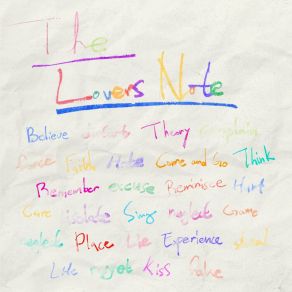 The
Lovers Note
Believe Theory
Dance Faith Hate Come and Go Think
Remember excuse Reminisce Hurt
Cure isolate Sing neglect Game
neglect Place Lie Experience
Life regret Kiss fake